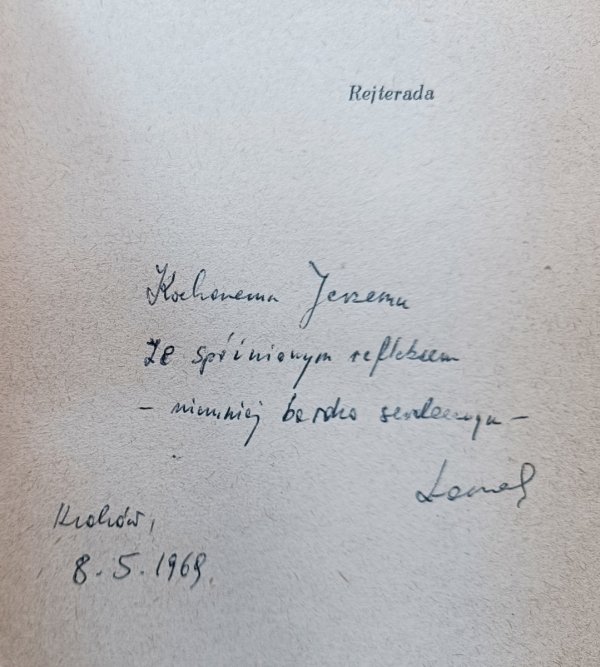 Rejterada
Kochanemu Jerzemu
ze spóźnionym refleksem
– niemniej bardzo serdecznym –
Kraków,
8.5.1969